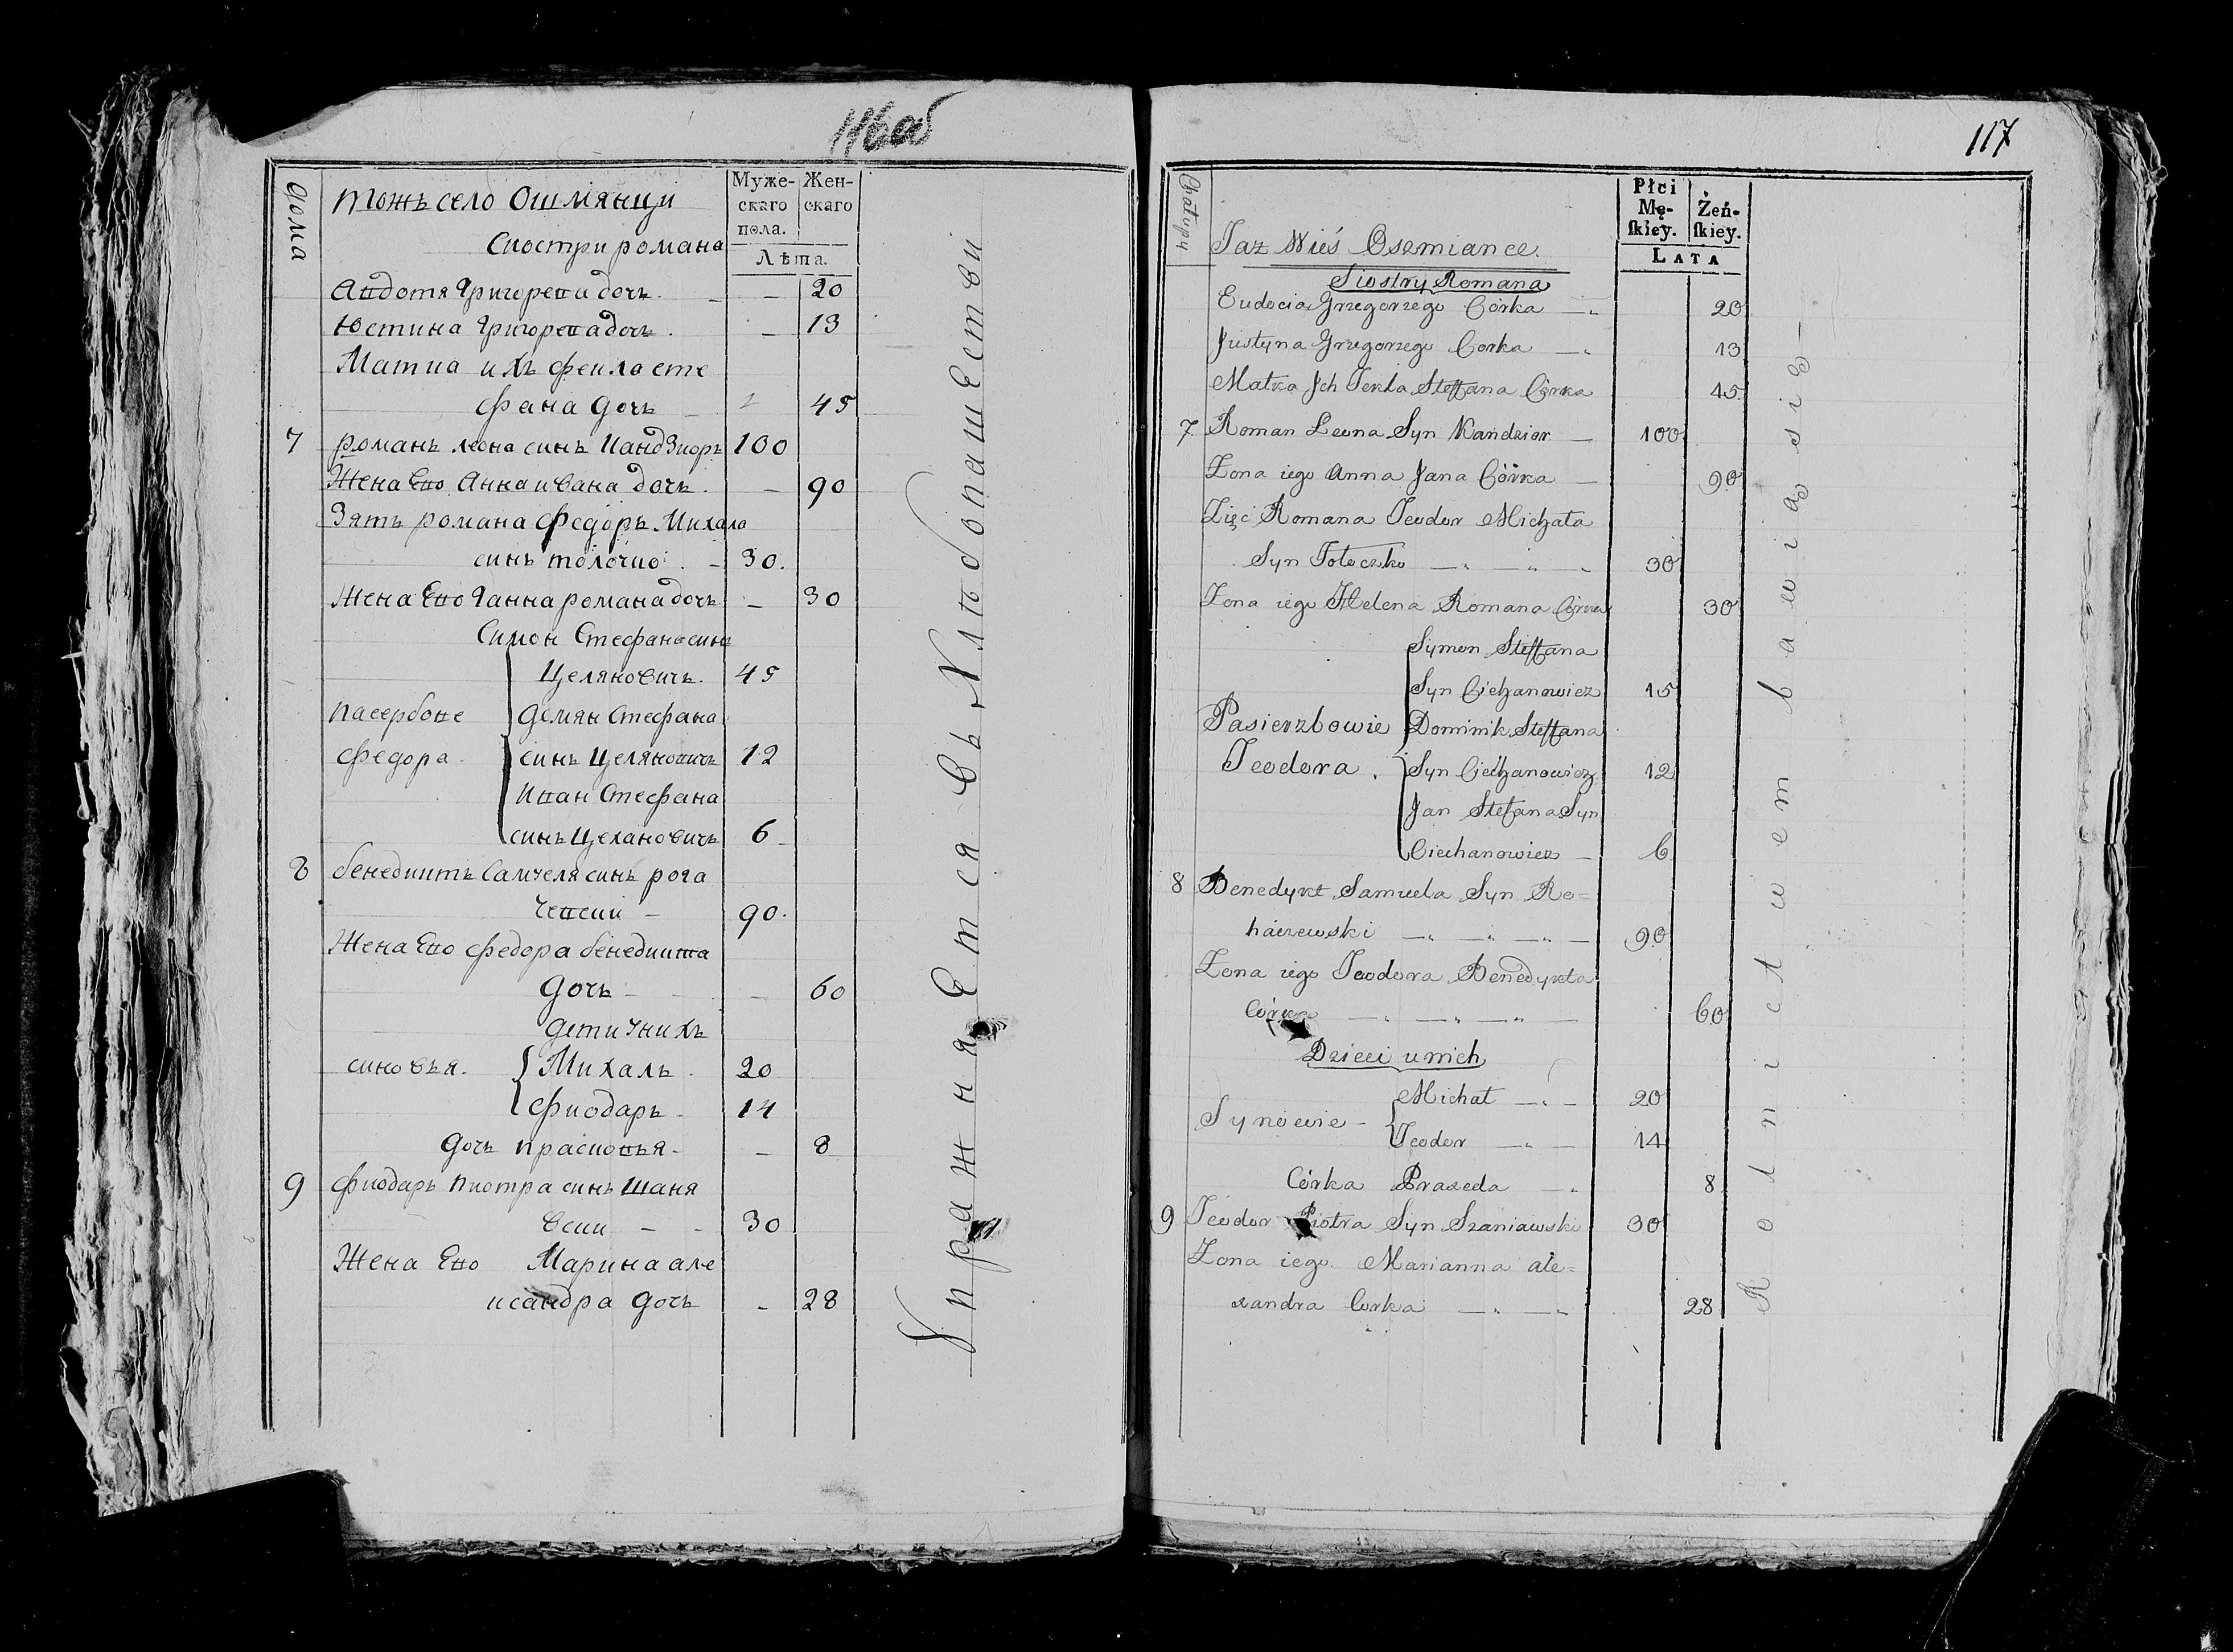 116об
Дома
Тожъ село Ошмянци
Муже-
скаго
пола.
Жен-
скаго
Лѣта.
Сиостри романа
Авдотя Григорева дочь. — — 20
Юстина Григорева дочь. — 13
Матка ихъ Фекла Сте
фана дочь — 45
7 романъ леона синъ Кандзиоръ 100
Жена Его Анна ивана дочь. — 90
Зять романа Федоръ Михала
синъ толочко . — 30.
Жена Его Ганна романа дочь — 30
Симон Стефана синъ
Целяновичъ. 45
пасербове Демян Стефана
Федора синъ Целяновичъ 12
Иван Стефана
синъ Цехановичъ 6
8 бенедиктъ Самуеля синъ рога
чевски — 90.
Жена Его Федора бенедикта
дочь — — 60
дети Унихъ
синовья. Михалъ . 20
Фиодаръ — 14
дочь праксовья — — 8
9 Фиодаръ пиотра синъ Шаня
вски — — 30
Жена Его Марина але
ксандра дочь - 28
УпражняЕтся въ ХлѣбопашЕстви
117
Chałupy
Taz Wieś Oszmiance.
Płci
Mę-
ſkiey.
Żeń-
ſkiey.
LATA
Siostry Romana
Eudocia Grzegorzego Córka — 20
Justyna Grzegorzego Corka — 13
Matka Jch Tekla Steffana Córka 45
7. Roman Leona Syn Kandzior — 100
Zona iego Anna Jana Córka — 90
Zięć Romana Teodor Michała
Syn Tołoczko — „ — „ — 30
Zona iego Helena Romana Córka 30
Symon Steffana
Syn Ciechanowicz 15
Pasierzbowie Dominik Steffana
Teodora . Syn Ciechanowicz 12
Jan Stefana Syn
Ciechanowicz — 6
8 Benedykt Samuela Syn Ro=
haczewski — „ — „ — „ — 90
Zona iego Teodora Benedykta
Córka — „ — „ — „ — 60
Dzieci u nich
Michał — „ — 20
Synowie - Teodor — „ — 14
Córka Praxeda — „ 8
9 Teodor Piotra Syn Szaniawski 30
Zona iego Marianna ale=
xandra Corka — „ — „ 28
Rolnictwem bawią się —